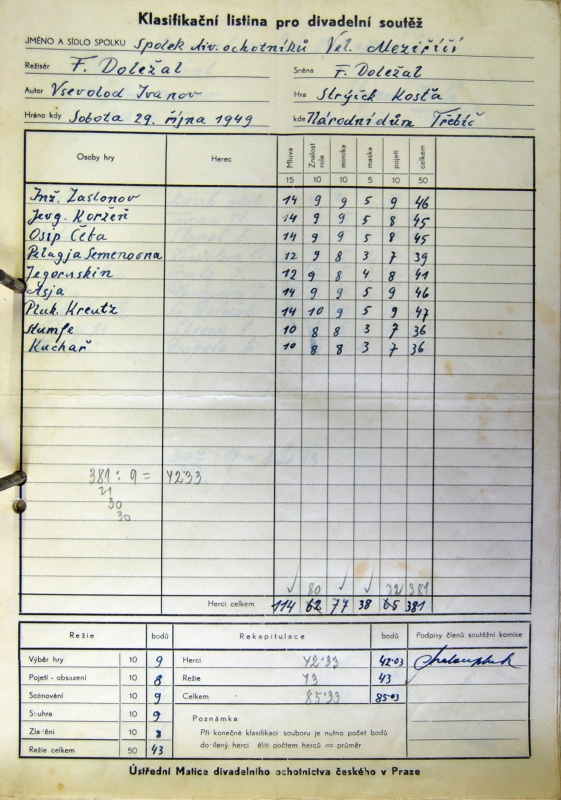 Klasifikační listina pro divadelní soutěž
JMÉNO A SÍDLO SPOLKU Spolek div. ochotníků Vel. Meziříčí
Režisér F. Doležal Scéna F. Doležal
Autor Vsevolod Ivanov Hra Strýček Kosťa
Hráno kdy Sobota 29. října 1949 kde Národní dům Třebíč
Osoby hry Herec Mluva Znalost role mimika maska pojetí celkem
15 10 10 5 10 50
Inž. Zaslonov 14 9 9 5 9 46
Jevg. Koržeň 14 9 9 5 8 45
Osip Čeba 14 9 9 5 8 45
Pelagja Semenovna 12 9 8 3 7 39
Jegoruškin 12 9 8 4 8 41
Asja 14 9 9 5 9 46
Pluk. Kreutz 14 10 9 5 9 47
Stumfe 10 8 8 3 7 36
Kuchař 10 8 8 3 7 36
381 : 9 = 42.33
21
30
30
80 72 381
Herci celkem 114 62 77 38 65 381
Režie bodů Rekapitulace bodů Podpisy členů soutěžní komise
Výběr hry 10 9 Herci 42.33 42.03
Pojetí - obsazení 10 8 Režie 43 43
Scénování 10 9 Celkem 85.33 85.03
Souhra 10 9 Poznámka
Zladění 10 8 Při konečné klasifikaci souboru je nutno počet bodů
Režie celkem 50 43 docílený herci dělit počtem herců = průměr
Ústřední Matice divadelního ochotnictva českého v Praze